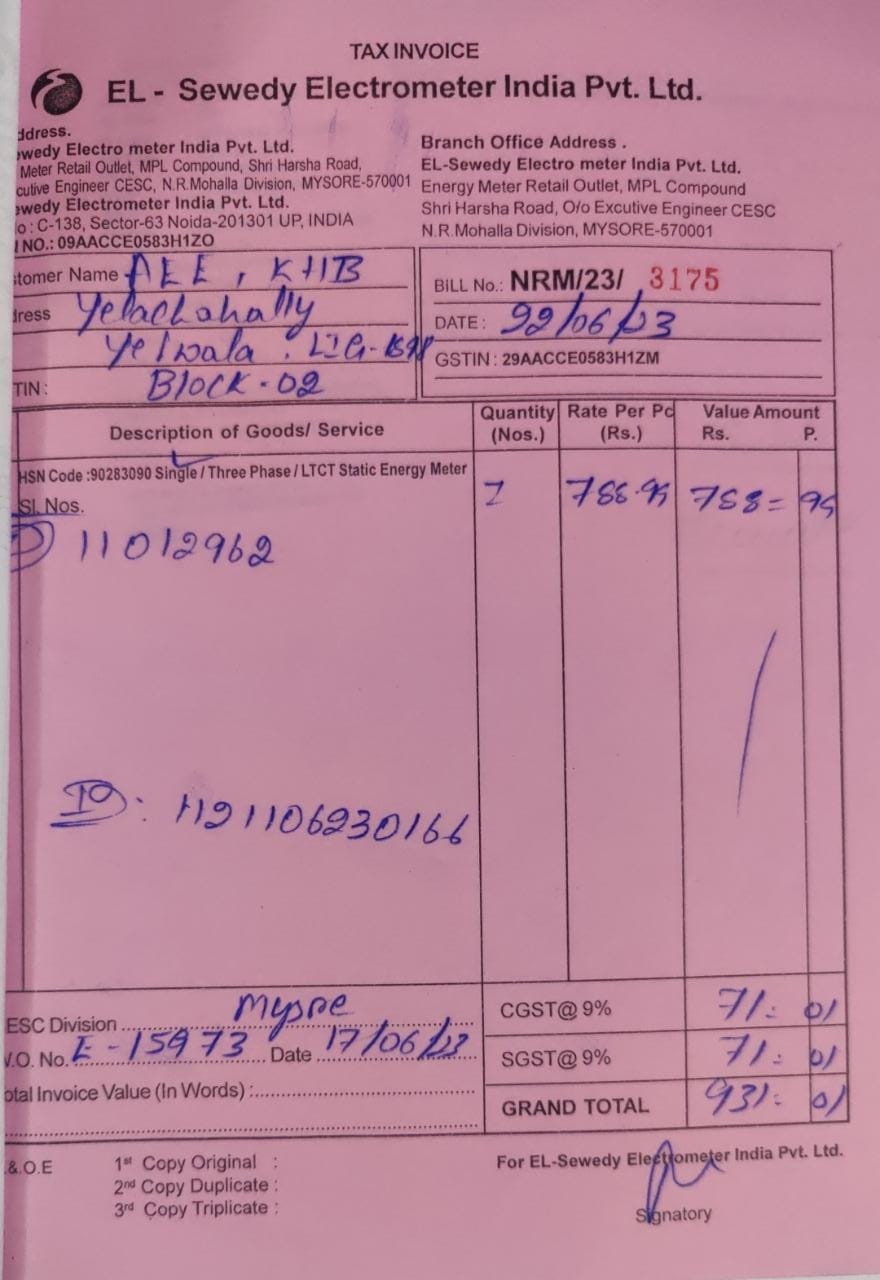 TAX INVOICE
EL - Sewedy Electrometer India Pvt. Ltd.
ddress.
wedy Electro meter India Pvt. Ltd.
Meter Retail Outlet, MPL Compound, Shri Harsha Road,
cutive Engineer CESC, N.R.Mohalla Division, MYSORE-570001
ewedy Electrometer India Pvt. Ltd.
o : C-138, Sector-63 Noida-201301 UP, INDIA
NO.: 09AACCE0583H1ZO
Branch Office Address .
EL-Sewedy Electro meter India Pvt. Ltd.
Energy Meter Retail Outlet, MPL Compound
Shri Harsha Road, O/o Excutive Engineer CESC
N.R.Mohalla Division, MYSORE-570001
tomer Name AEE, KHB
dress Yelachahally
Yelwala .
TIN : Block - 02
BILL No.: NRM/23/ 3175
DATE : 22/06/23
GSTIN : 29AACCE0583H1ZM
Description of Goods/ Service Quantity (Nos.) Rate Per Pc (Rs.) Value Amount Rs. P.
HSN Code :90283090 Single / Three Phase / LTCT Static Energy Meter
Sl. Nos. 1
11012962
ID : 1121106230166
ESC Division Mysore
.O. No. E-15973 Date 17/06/23
otal Invoice Value (In Words) :
CGST@ 9% 71 = 01
SGST@ 9% 71 = 01
GRAND TOTAL 931 = 01
.&.O.E
1st Copy Original :
2nd Copy Duplicate :
3rd Copy Triplicate :
For EL-Sewedy Electrometer India Pvt. Ltd.
Signatory